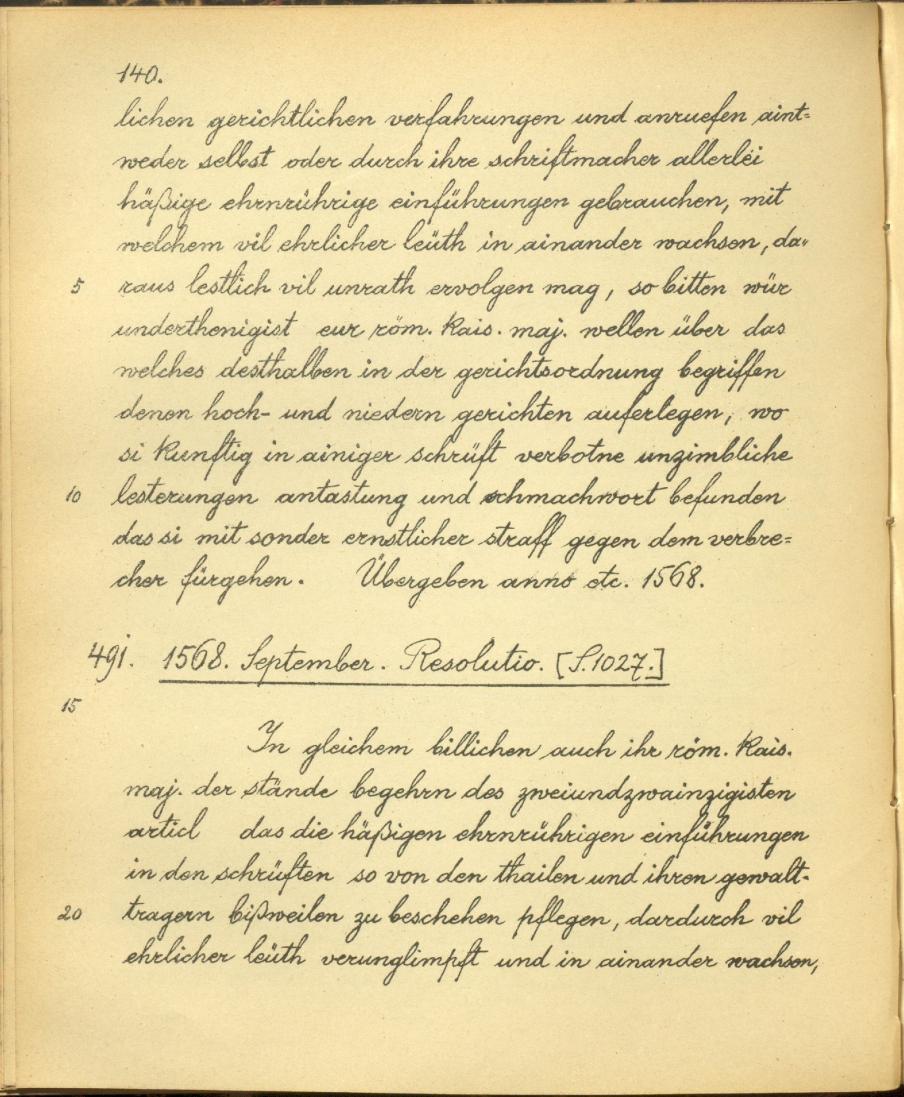 140.
lichen gerichtlichen verfahrungen und anruefen aint=
weder selbst oder durch ihre schriftmacher allerlei
häßige ehrnrührige einführungen gebrauchen, mit
welchem vil ehrlicher leüth in ainander wachsen, da=
5 raus lestlich vil unrath ervolgen mag, so bitten wür
underthenigist eur röm. kais. maj. wellen über das
welches desthalben in der gerichtsordnung begriffen
denen hoch- und niedern gerichten auferlegen, wo
si kunftig in ainiger schrüft verbotne unzimbliche
10 lesterungen antastung und schmachwort befunden
das si mit sonder ernstlicher straff gegen dem verbre=
cher fürgehen. Übergeben anno etc. 1568.
491. 1568. September. Resolutio. [S.1027.]
15
In gleichem billichen auch ihr röm. kais.
maj. der stände begehrn des zweiundzwainzigisten
articl das die häßigen ehrnrührigen einführungen
in den schrüften so von den thailen und ihren gewalt-
20 tragern bißweilen zu beschehen pflegen, dardurch vil
ehrlicher leüth verunglimpft und in ainander wachsen,